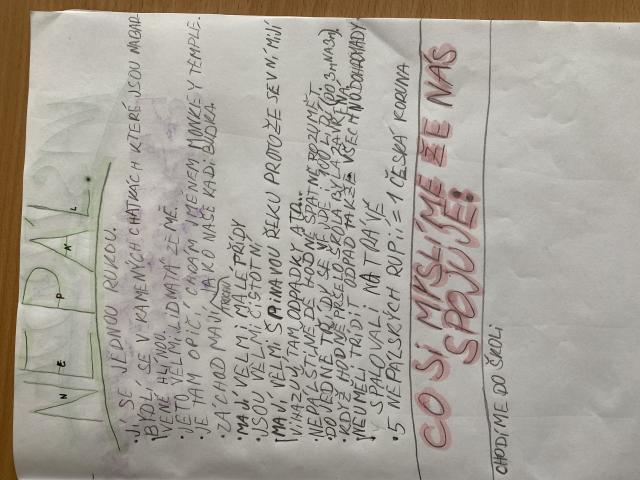 NEPÁL.
N E P K L
• JÍ SE JEDNOU RUKOU.
• BYDLÍ SE V KAMENÝCH CHATKÁCH KTERÉ JSOU NABAR
VENÉ HLÍNOU.
• JE TO VELMI LIDNATÁ ZEMĚ.
• JE TAM OPIČÍ CHRÁM JMÉNEM MONKEY TEMPLE.
• ZÁCHOD MAJÍ JAKO NAŠE KADIBUDKA.
• MAJÍ VELMI MALÉ TŘÍDY
• JSOU VELMI ČISTOTNÍ
• MAJÍ VELMI ŠPINAVOU ŘEKU PROTOŽE SE V NÍ MIJÍ
VIHAZUJÍ TAM ODPADKY ATD...
• NEPÁLŠTINĚ DE HODNĚ ŠPATNĚ ROZUMĚT.
• DO JEDNÉ TŘÍDY SE VEJDE 100 LIDÍ (DO 3mNA3m)
• KDYŽ HODNĚ PRŠELO ŠKOLA BYLA ZAVŘENÁ.
• NEUMĚLI TŘÍDIT ODPAD TAKŽE VŠECHNO DOHROMADY
SPALOVALI NA TRÁVĚ
• 5 NEPÁLSKÝCH RUPIÍ = 1 ČESKÁ KORUNA
CO SI MYSLÍME ŽE NÁS
SPOJUJE:
CHODÍME DO ŠKOLI